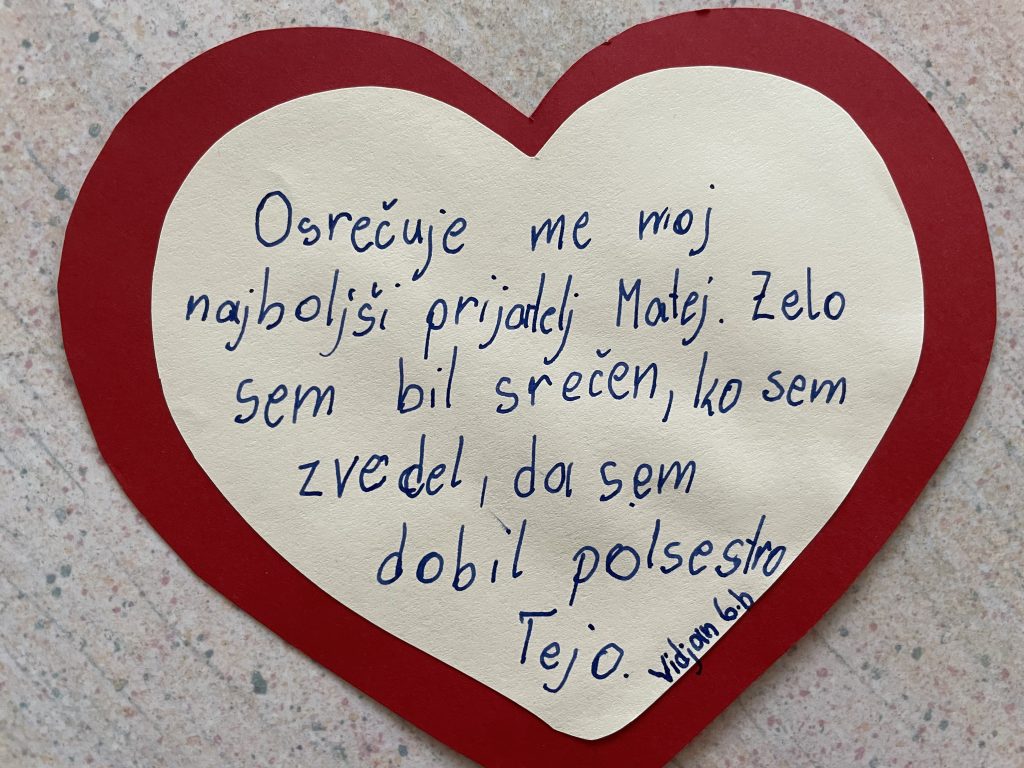 Osrečuje me moj
najboljši prijatelj Matej. Zelo
sem bil srečen, ko sem
zvedel, da sem
dobil polsestro
Tejo.
Vidjan 6.b